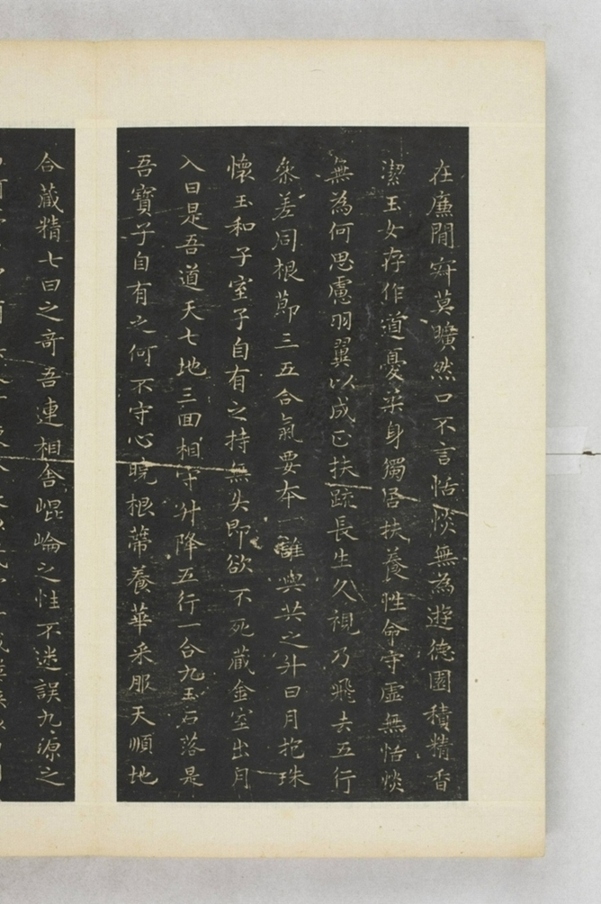 在廉間寂莫曠然口不言恬惔無為遊德園積精香
潔玉女存作道憂柔身獨居扶養性命守虛無恬惔
無為何思慮羽翼以成正扶疏長生久視乃飛去五行
參差同根節三五合氣要本一誰與共之升日月抱珠
懷玉和子室子自有之持無失即欲不死藏金室出月
入日是吾道天七地三回相守升降五行一合九玉石落是
吾寶子自有之何不守心曉根蒂養華采服天順地
合藏精七日之奇吾連相舍崐崘之性不迷誤九源之